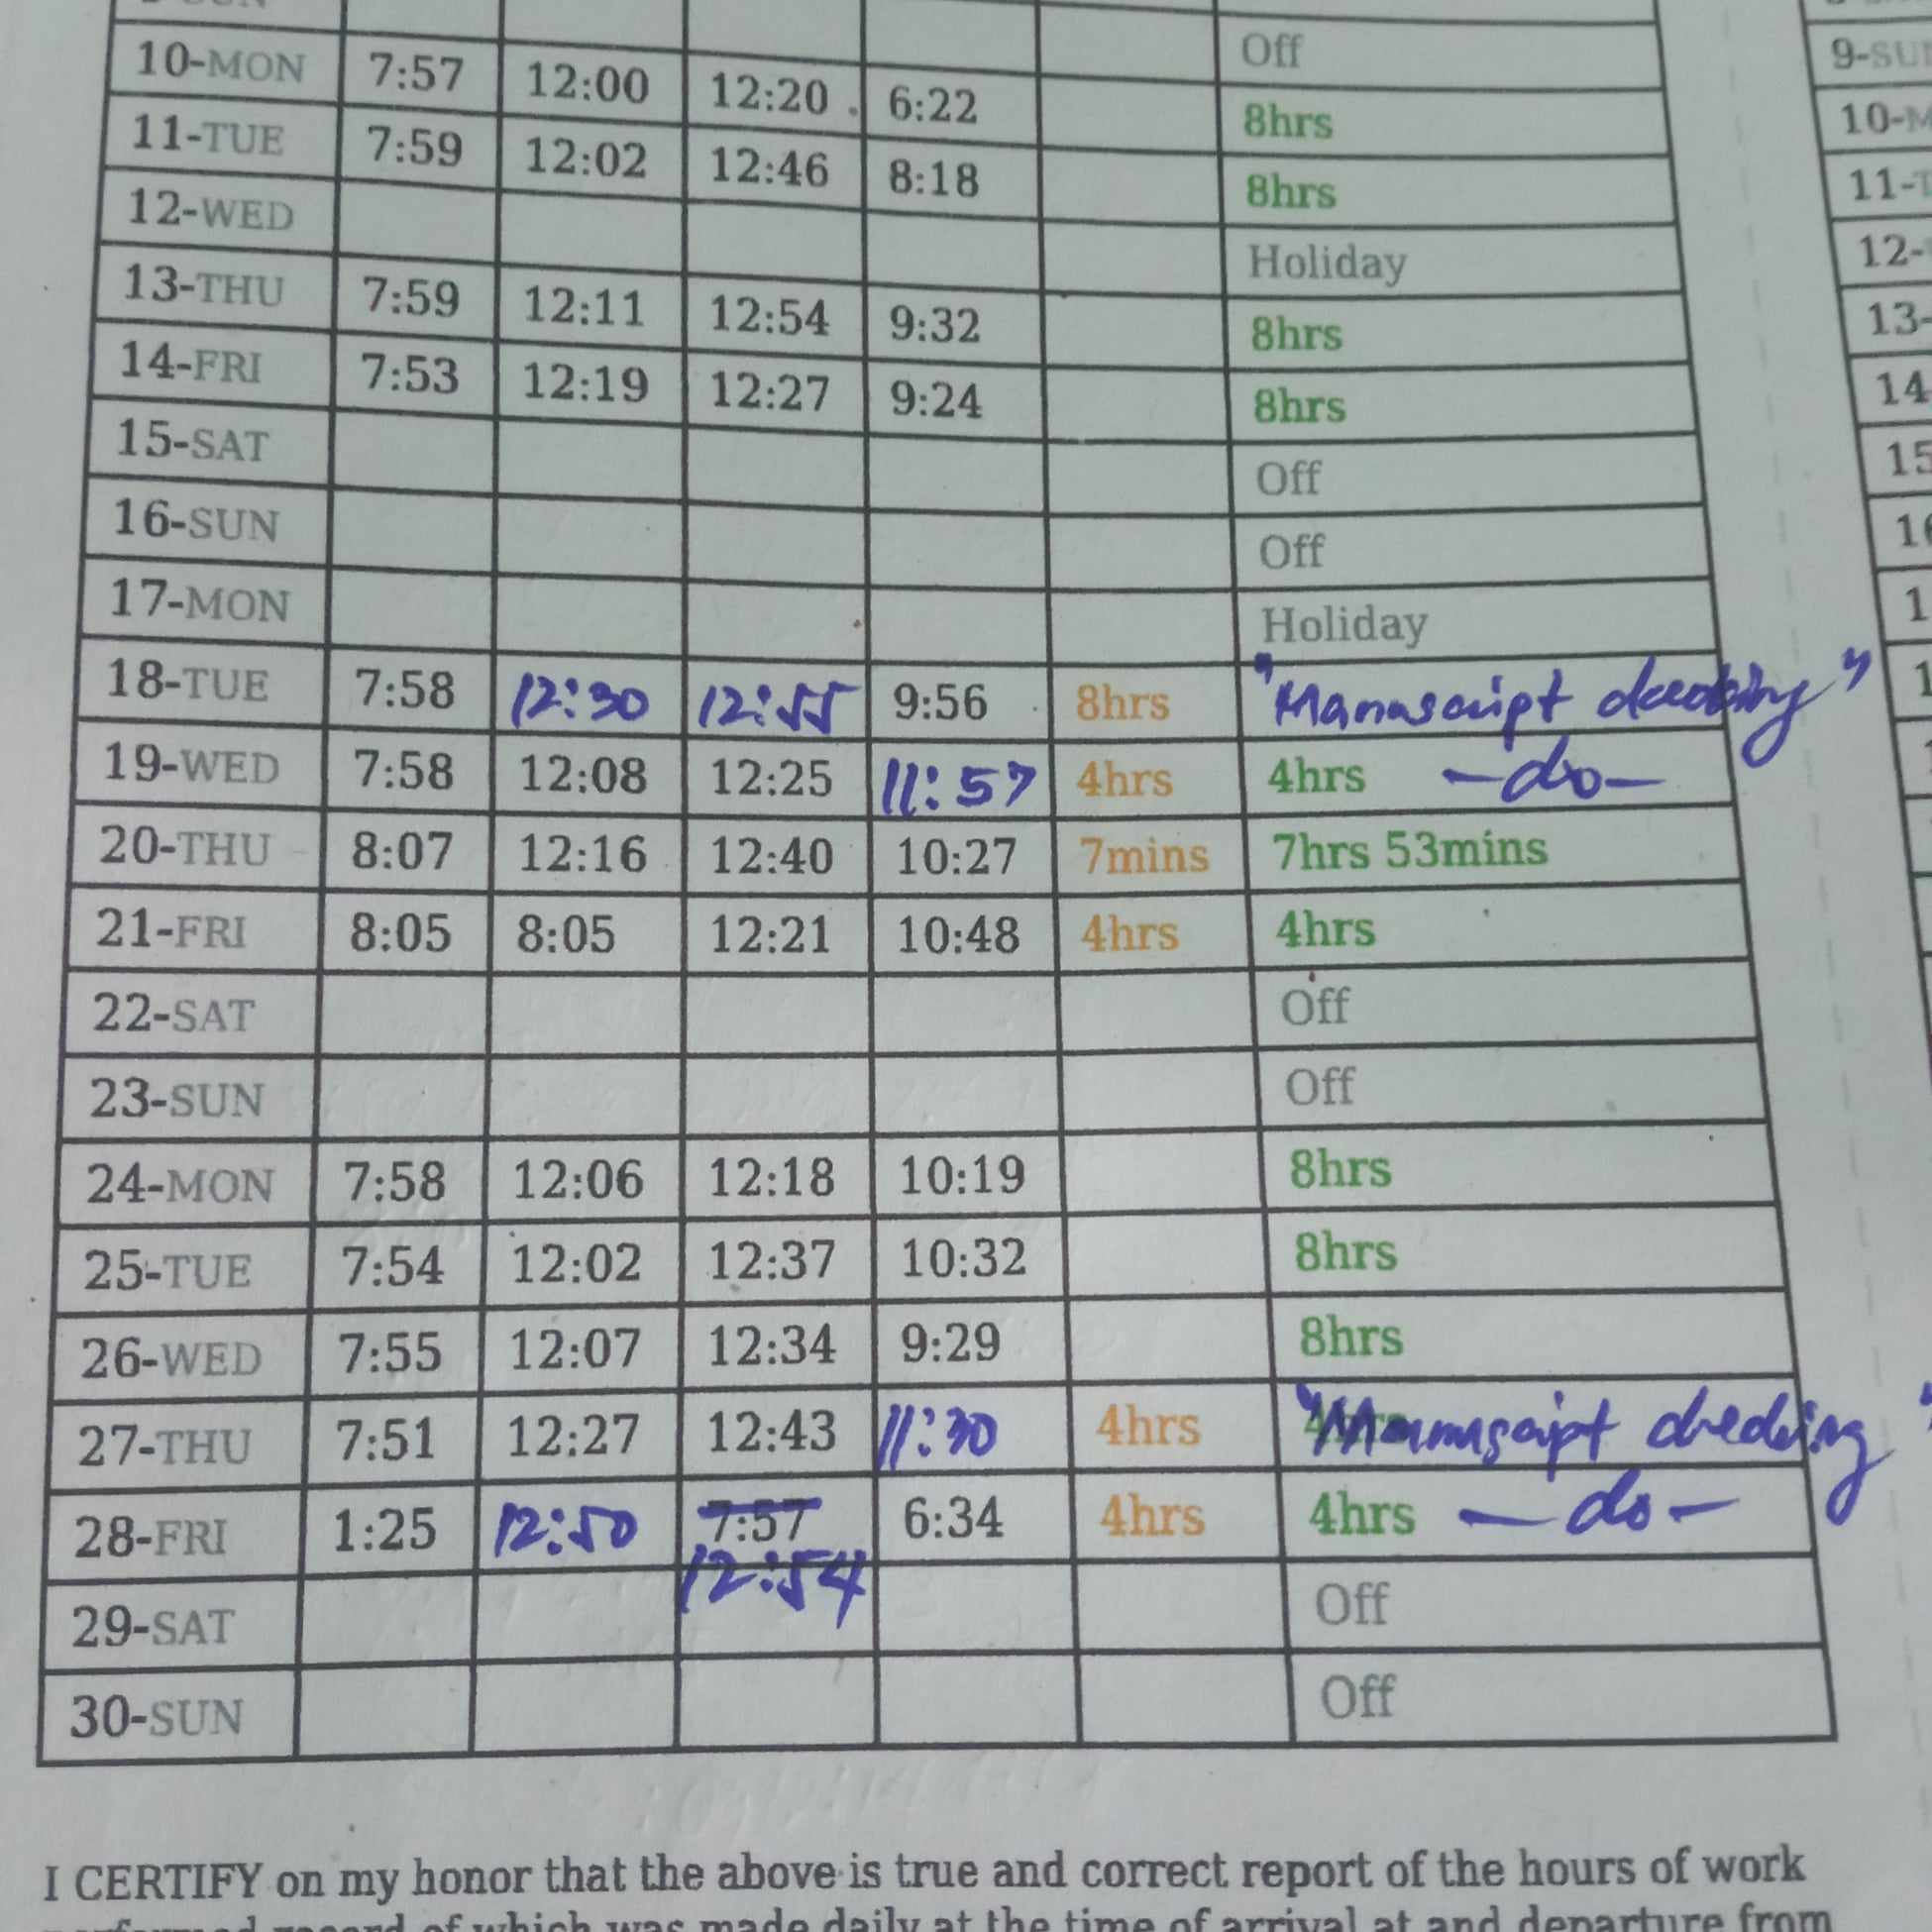 Off
10-MON 7:57 12:00 12:20 6:22 8hrs
11-TUE 7:59 12:02 12:46 8:18 8hrs
12-WED Holiday
13-THU 7:59 12:11 12:54 9:32 8hrs
14-FRI 7:53 12:19 12:27 9:24 8hrs
15-SAT Off
16-SUN Off
17-MON Holiday
18-TUE 7:58 12:30 12:55 9:56 8hrs "Manuscript checking"
19-WED 7:58 12:08 12:25 11:57 4hrs 4hrs -do-
20-THU 8:07 12:16 12:40 10:27 7mins 7hrs 53mins
21-FRI 8:05 8:05 12:21 10:48 4hrs 4hrs
22-SAT Off
23-SUN Off
24-MON 7:58 12:06 12:18 10:19 8hrs
25-TUE 7:54 12:02 12:37 10:32 8hrs
26-WED 7:55 12:07 12:34 9:29 8hrs
27-THU 7:51 12:27 12:43 11:30 4hrs 4hrs "Manuscript checking"
28-FRI 1:25 12:50 7:57 6:34 4hrs 4hrs -do-
12:54
29-SAT Off
30-SUN Off
I CERTIFY on my honor that the above is true and correct report of the hours of work
performed record of which was made daily at the time of arrival at and departure from
9-SU
10-M
11-T
12-
13-
14
15
16
1
1
1